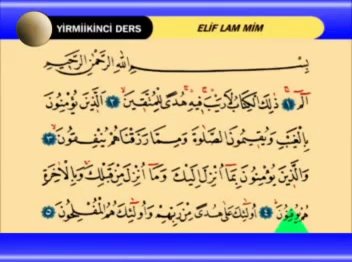 YİRMİİKİNCİ DERS
ELİF LAM MİM
بِسْمِ اللهِ الرَّحْمٰنِ الرَّحِيمِ
الٓمٓ ﴿١﴾ ذٰلِكَ الْكِتَابُ لَارَيْبَۚ فِيهِۚ هُدًى لِلْمُتَّقِينَۙ ﴿٢﴾ اَلَّذِينَ يُؤْمِنُونَ
بِالْغَيْبِ وَيُقِيمُونَ الصَّلٰوةَ وَمِمَّا رَزَقْنَاهُمْ يُنْفِقُونَۙ ﴿٣﴾
وَالَّذِينَ يُؤْمِنُونَ بِمَٓا اُنْزِلَ اِلَيْكَ وَمَٓا اُنْزِلَ مِنْ قَبْلِكَۚ وَبِالْاٰخِرَةِ
هُمْ يُوقِنُونَۜ ﴿٤﴾ اُو۬لٰٓئِكَ عَلٰى هُدًى مِنْ رَبِّهِمْ وَاُو۬لٰٓئِكَ هُمُ الْمُفْلِحُونَ ﴿٥﴾